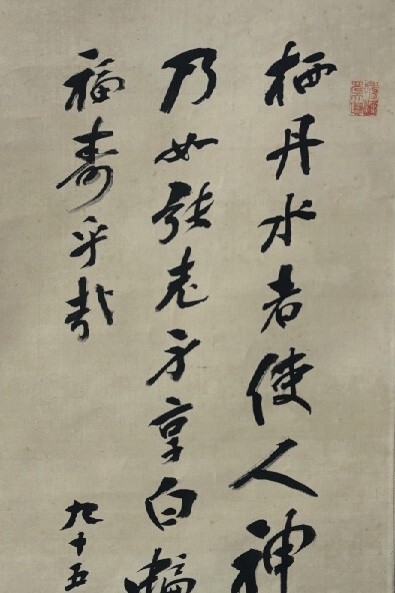 栖丹水者使人神
乃如張老方享白
福寿乎哉
九十五